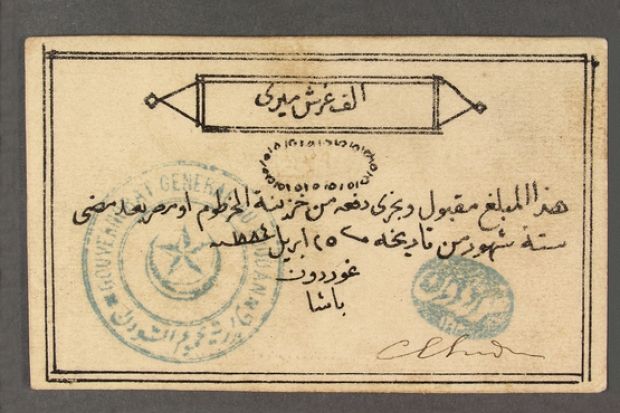 الف غرش ميرى
هذا المبلغ مقبول ويجرى دفعه من خزينة الخرطوم او مصر بعد مضى
ستة شهور من تاريخه ٢٥ ابريل ١٨٨٤
غوردون
باشا
GOUVERNORAT GENERAL DU SOUDAN